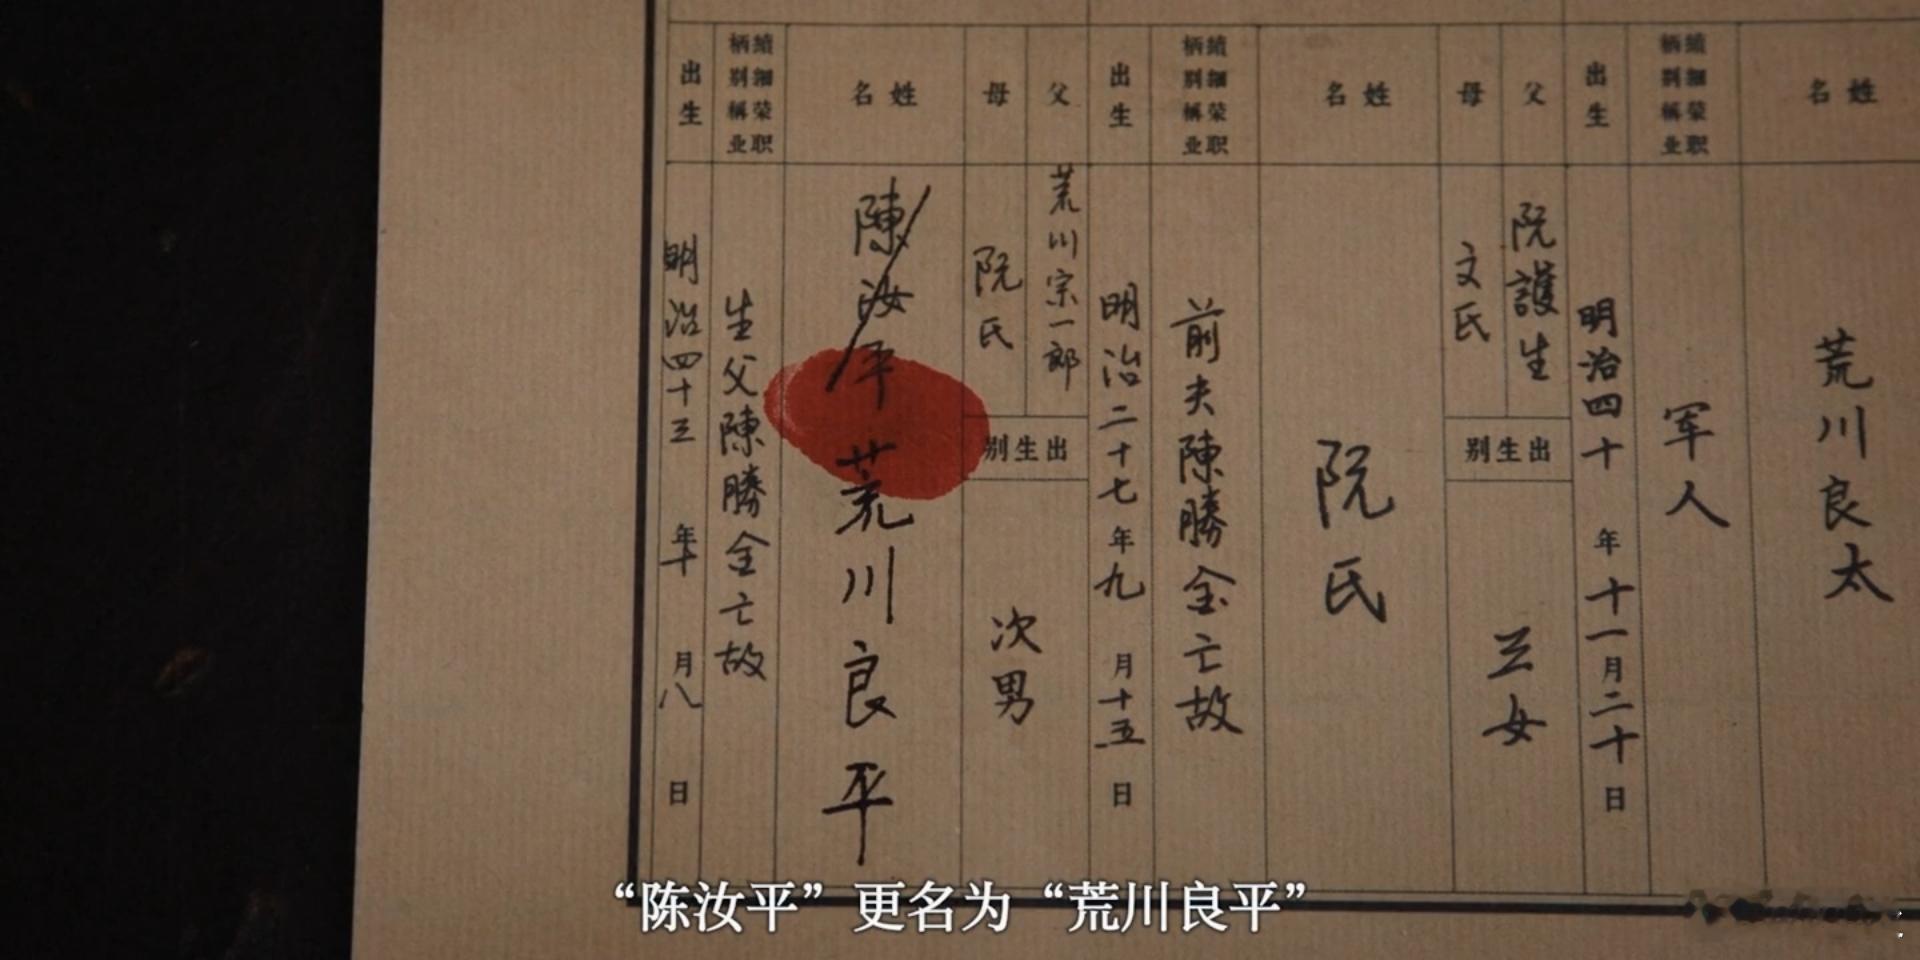 姓名
荒川良太
績細栄职
柄别稱业
军人
出生
明治四十年十一月二十日
父
阮護生
母
文氏
出生别
三女
姓名
阮氏
績細栄职
柄别稱业
前夫陳勝金亡故
出生
明治二十七年九月十五日
父
荒川宗一郎
母
阮氏
出生别
次男
姓名
陳汝平
荒川良平
績細栄职
柄别稱业
生父陳勝金亡故
出生
明治四十三年十月八日
“陈汝平”更名为“荒川良平”